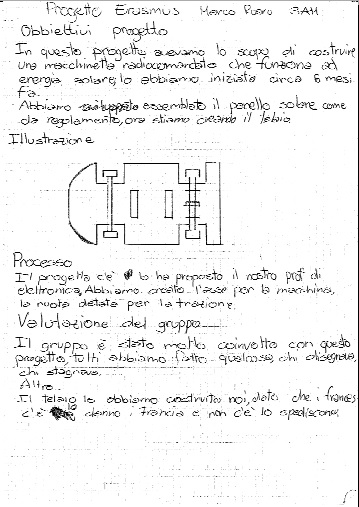 Progetto Erasmus Marco Puoro 3AH
Obbiettivi progetto
In questo progetto avevamo lo scopo di costruire
una macchinetta radiocomandata che funziona ad
energia solare, lo abbiamo iniziato circa 6 mesi
fa.
Abbiamo assemblato il panello solare come
da regolamento, ora stiamo creando il telaio
Illustrazione
Processo
Il progetto c'è lo ha proposto il nostro prof di
elettronica, Abbiamo creato l'asse per la macchina,
la ruota detata per la trazione.
Valutazione del gruppo
Il gruppo è stato molto coinvolto con questo
progetto, tutti abbiamo fatto qualcosa, chi disegnava,
chi stagnava.
Altro
Il telaio lo abbiamo costruito noi, dato che i frances
c'è danno i Francia e non c'è lo spediscono